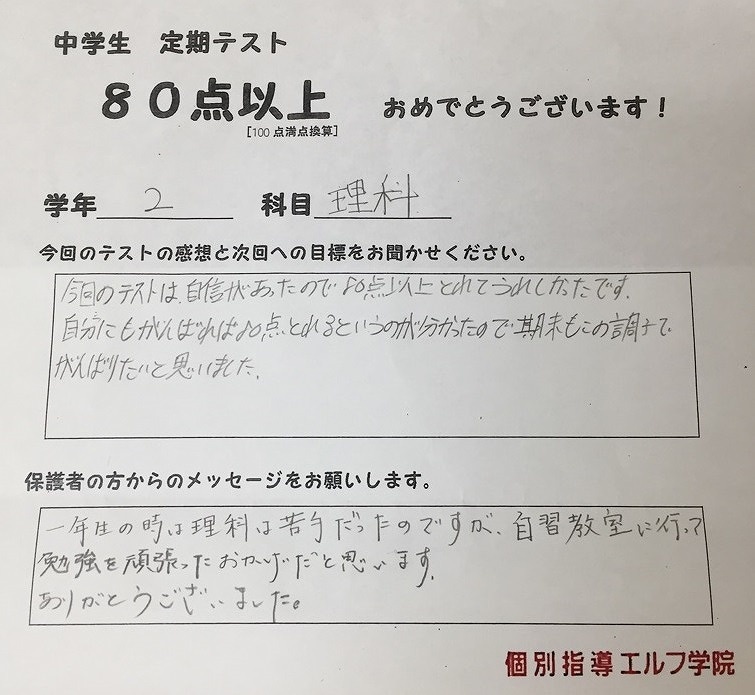 中学生 定期テスト
８０点以上 おめでとうございます！
[100 点満点換算]
学年 2 科目 理科
今回のテストの感想と次回への目標をお聞かせください。
今回のテストは、自信があったので80点以上とれてうれしかったです。
自分にもがんばれば80点とれるというのが分かったので期末もこの調子で
がんばりたいと思いました。
保護者の方からのメッセージをお願いします。
一年生の時は理科は苦手だったのですが、自習教室に行って
勉強を頑張ったおかげだと思います。
ありがとうございました。
個別指導エルフ学院